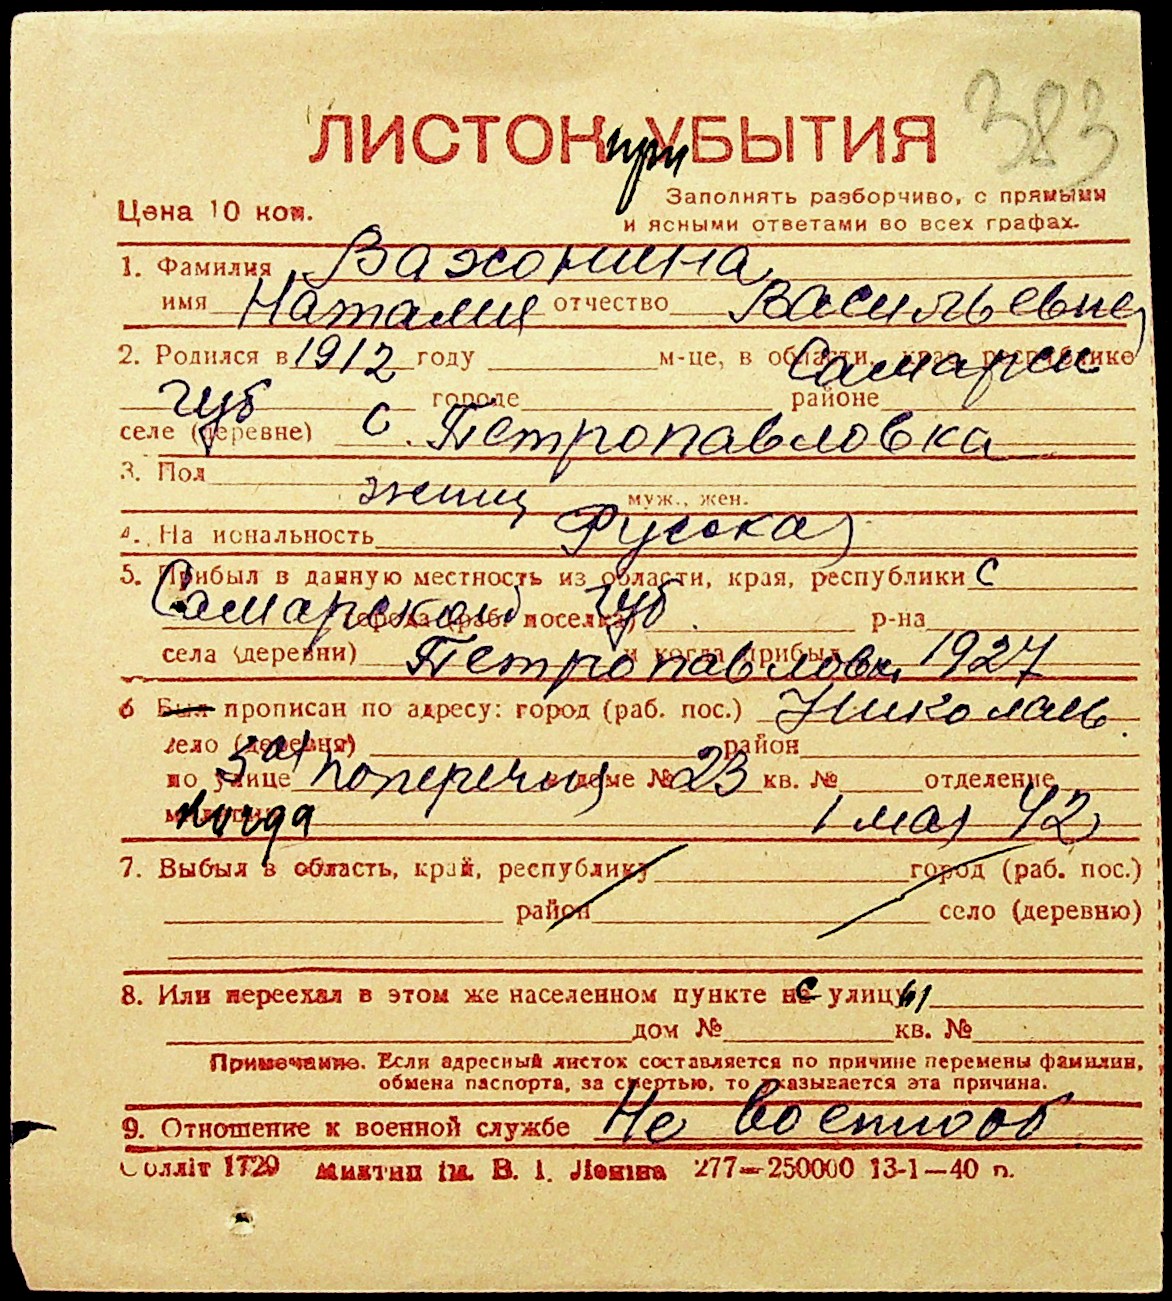 383
ЛИСТОК при УБЫТИЯ
Цена 10 коп.
Заполнять разборчиво, с прямыми
и ясными ответами во всех графах.
1. Фамилия Важонина
имя Наталия отчество Васильевна
2. Родился в 1912 году м-це, в области, крае, республике Самарск
губ городе районе
селе (деревне) с. Петропавловка
3. Пол женщ муж., жен.
4. На иональность Русская
5. Прибыл в данную местность из области, края, республики с
Самарской губ города (раб. поселка) р-на
села (деревни) Петропавловк и когда прибыл 1927
6 Был прописан по адресу: город (раб. пос.) Николаев
село (деревня) район
по улице 5ая поперечная в доме № 23 кв. № отделение
милиции когда 1 мая 42
7. Выбыл в область, край, республику город (раб. пос.)
район село (деревню)
8. Или переехал в этом же населенном пункте на с улицу 41
дом № кв. №
Примечание. Если адресный листок составляется по причине перемены фамилии,
обмена паспорта, за смертью, то указывается эта причина.
9. Отношение к военной службе Не военнооб
Облліт 1729 Миктип ім. В. І. Леніна 277—250000 13-1—40 р.